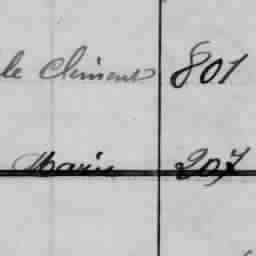 le Clément 801
Marie 207